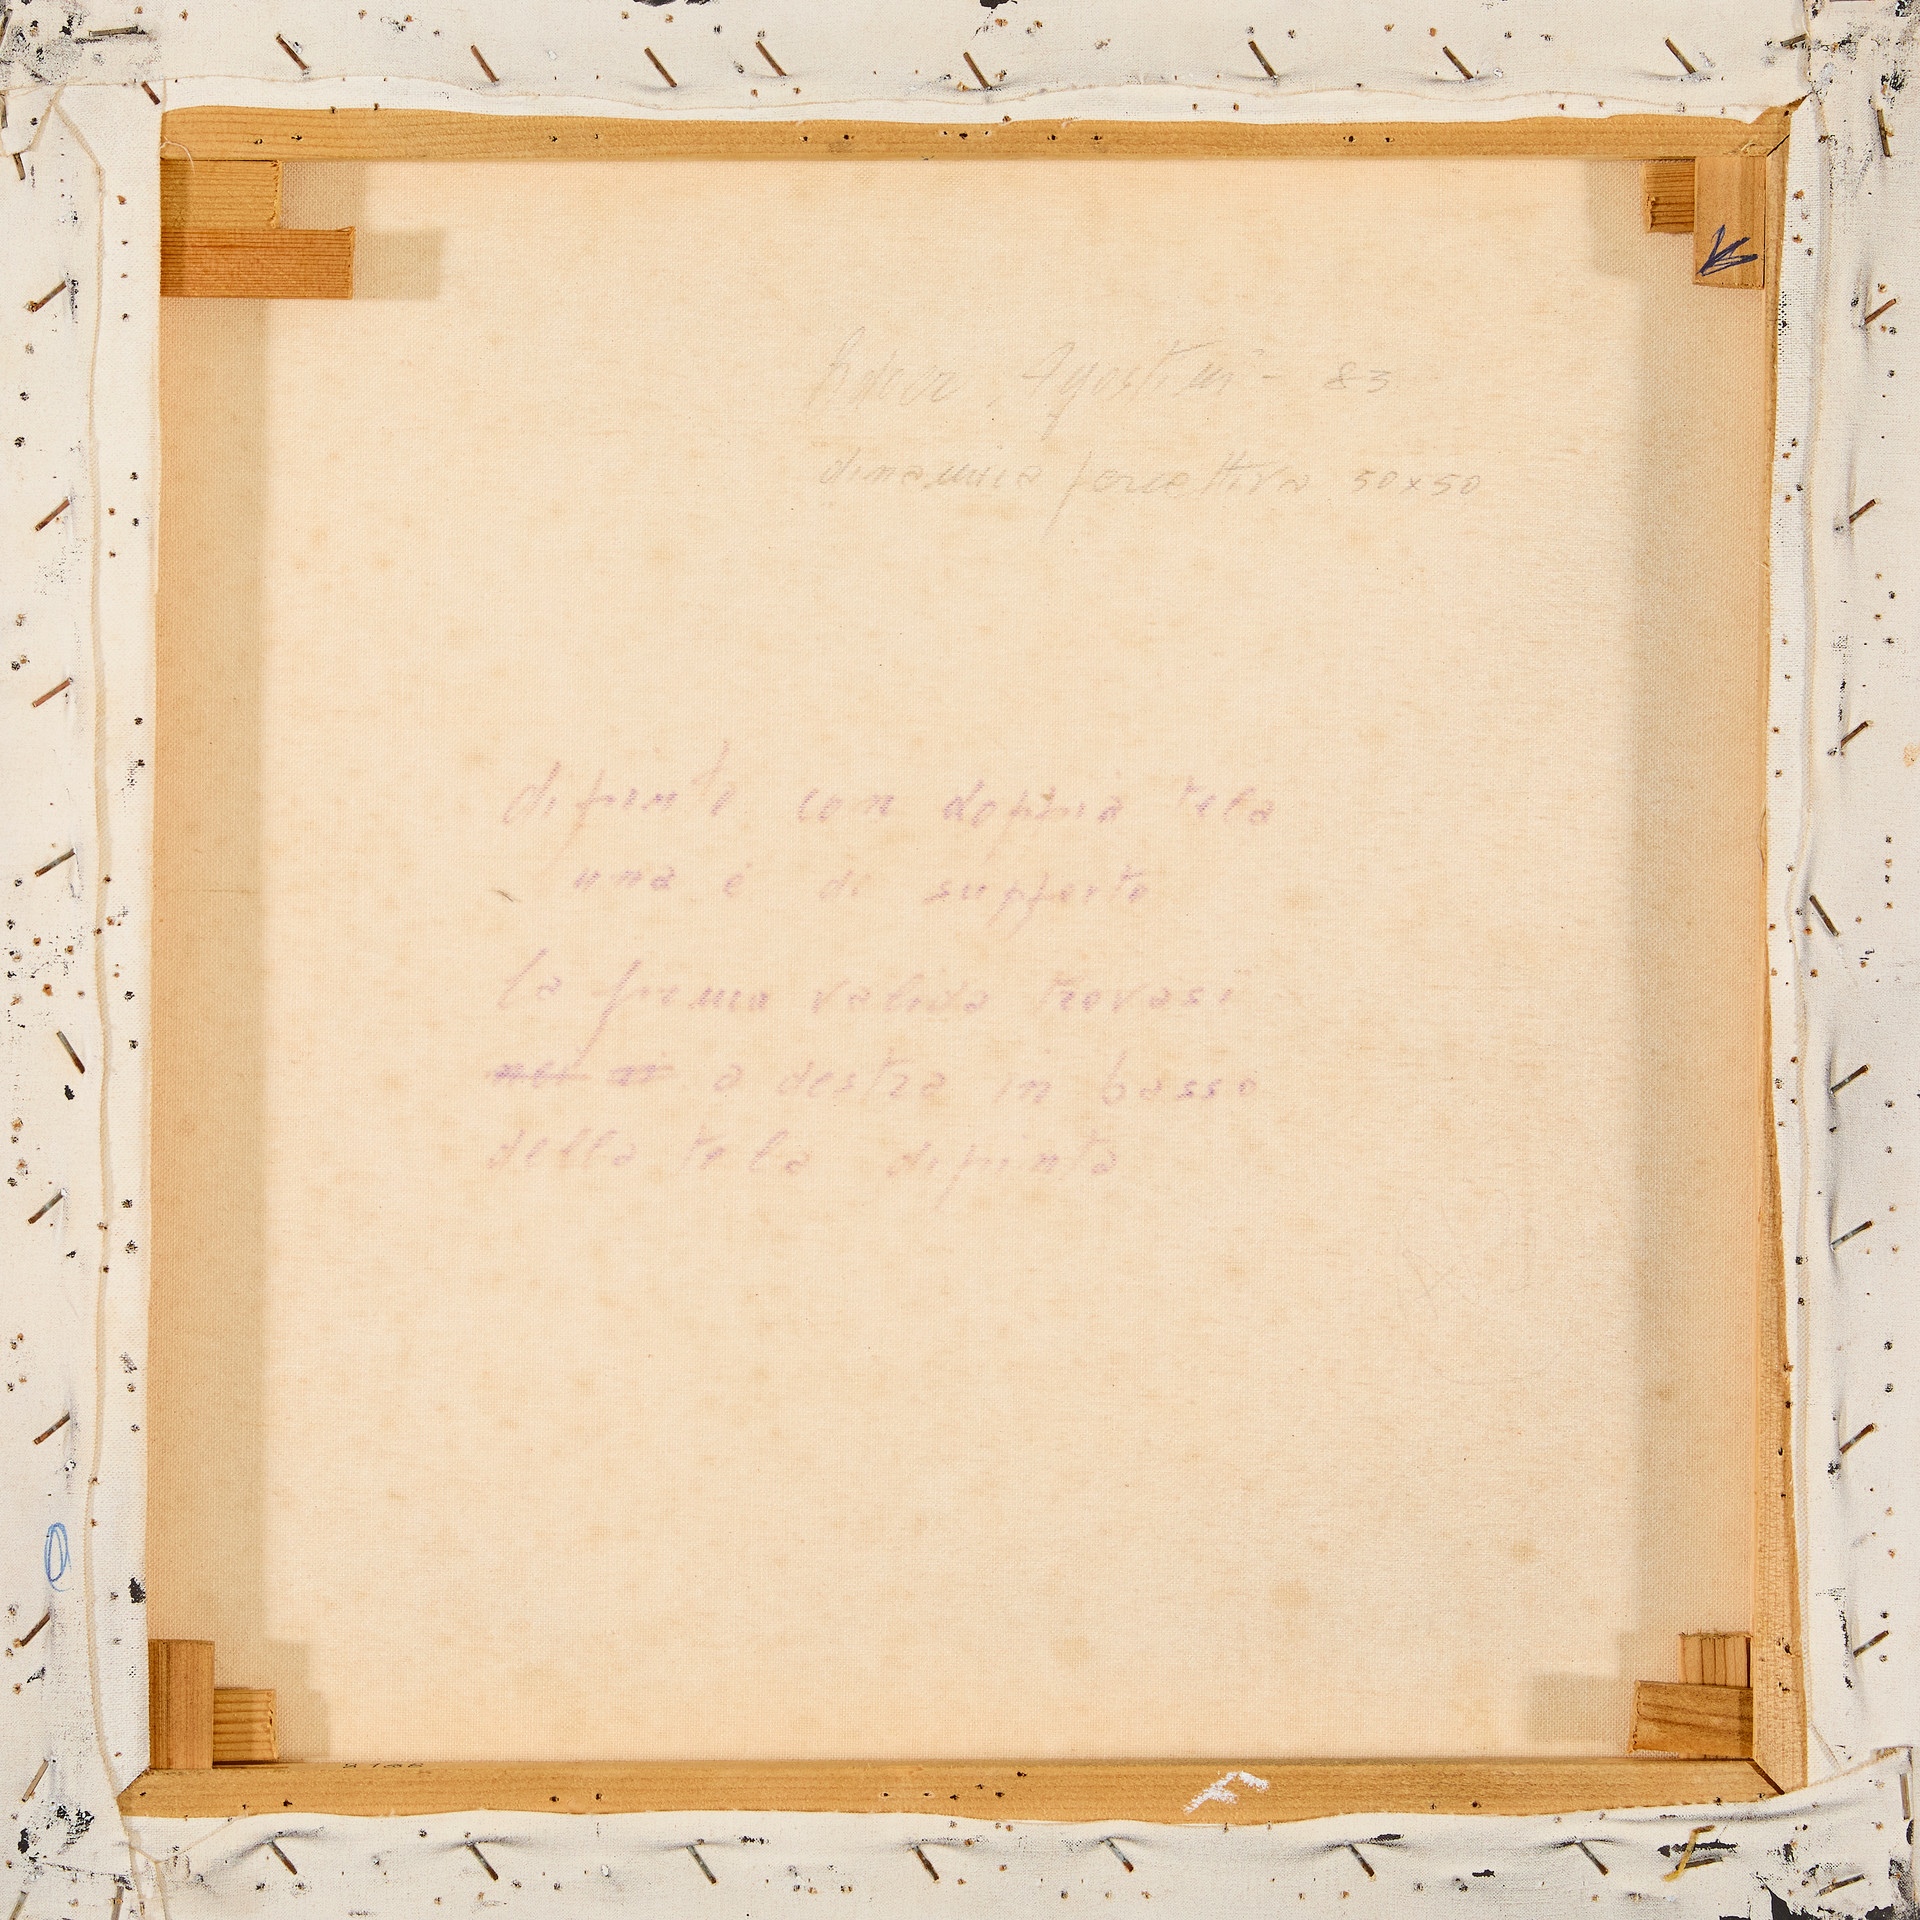 Agostini - 83
dinamica percettiva 50x50
dipinto con doppia tela
una è di supporto
la firma valida trovasi
a destra in basso
della tela dipinta